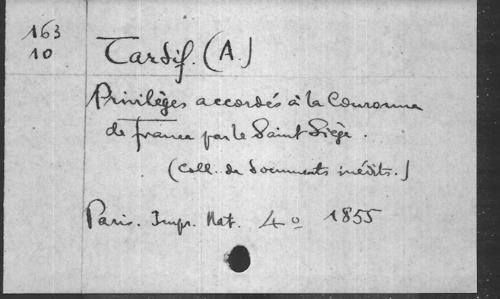 163
10
Tardif. (A.)
Privilèges accordés à la Couronne
de France par le Saint Siège.
(Coll. de Documents inédits.)
Paris. Impr. Nat. 4º 1855